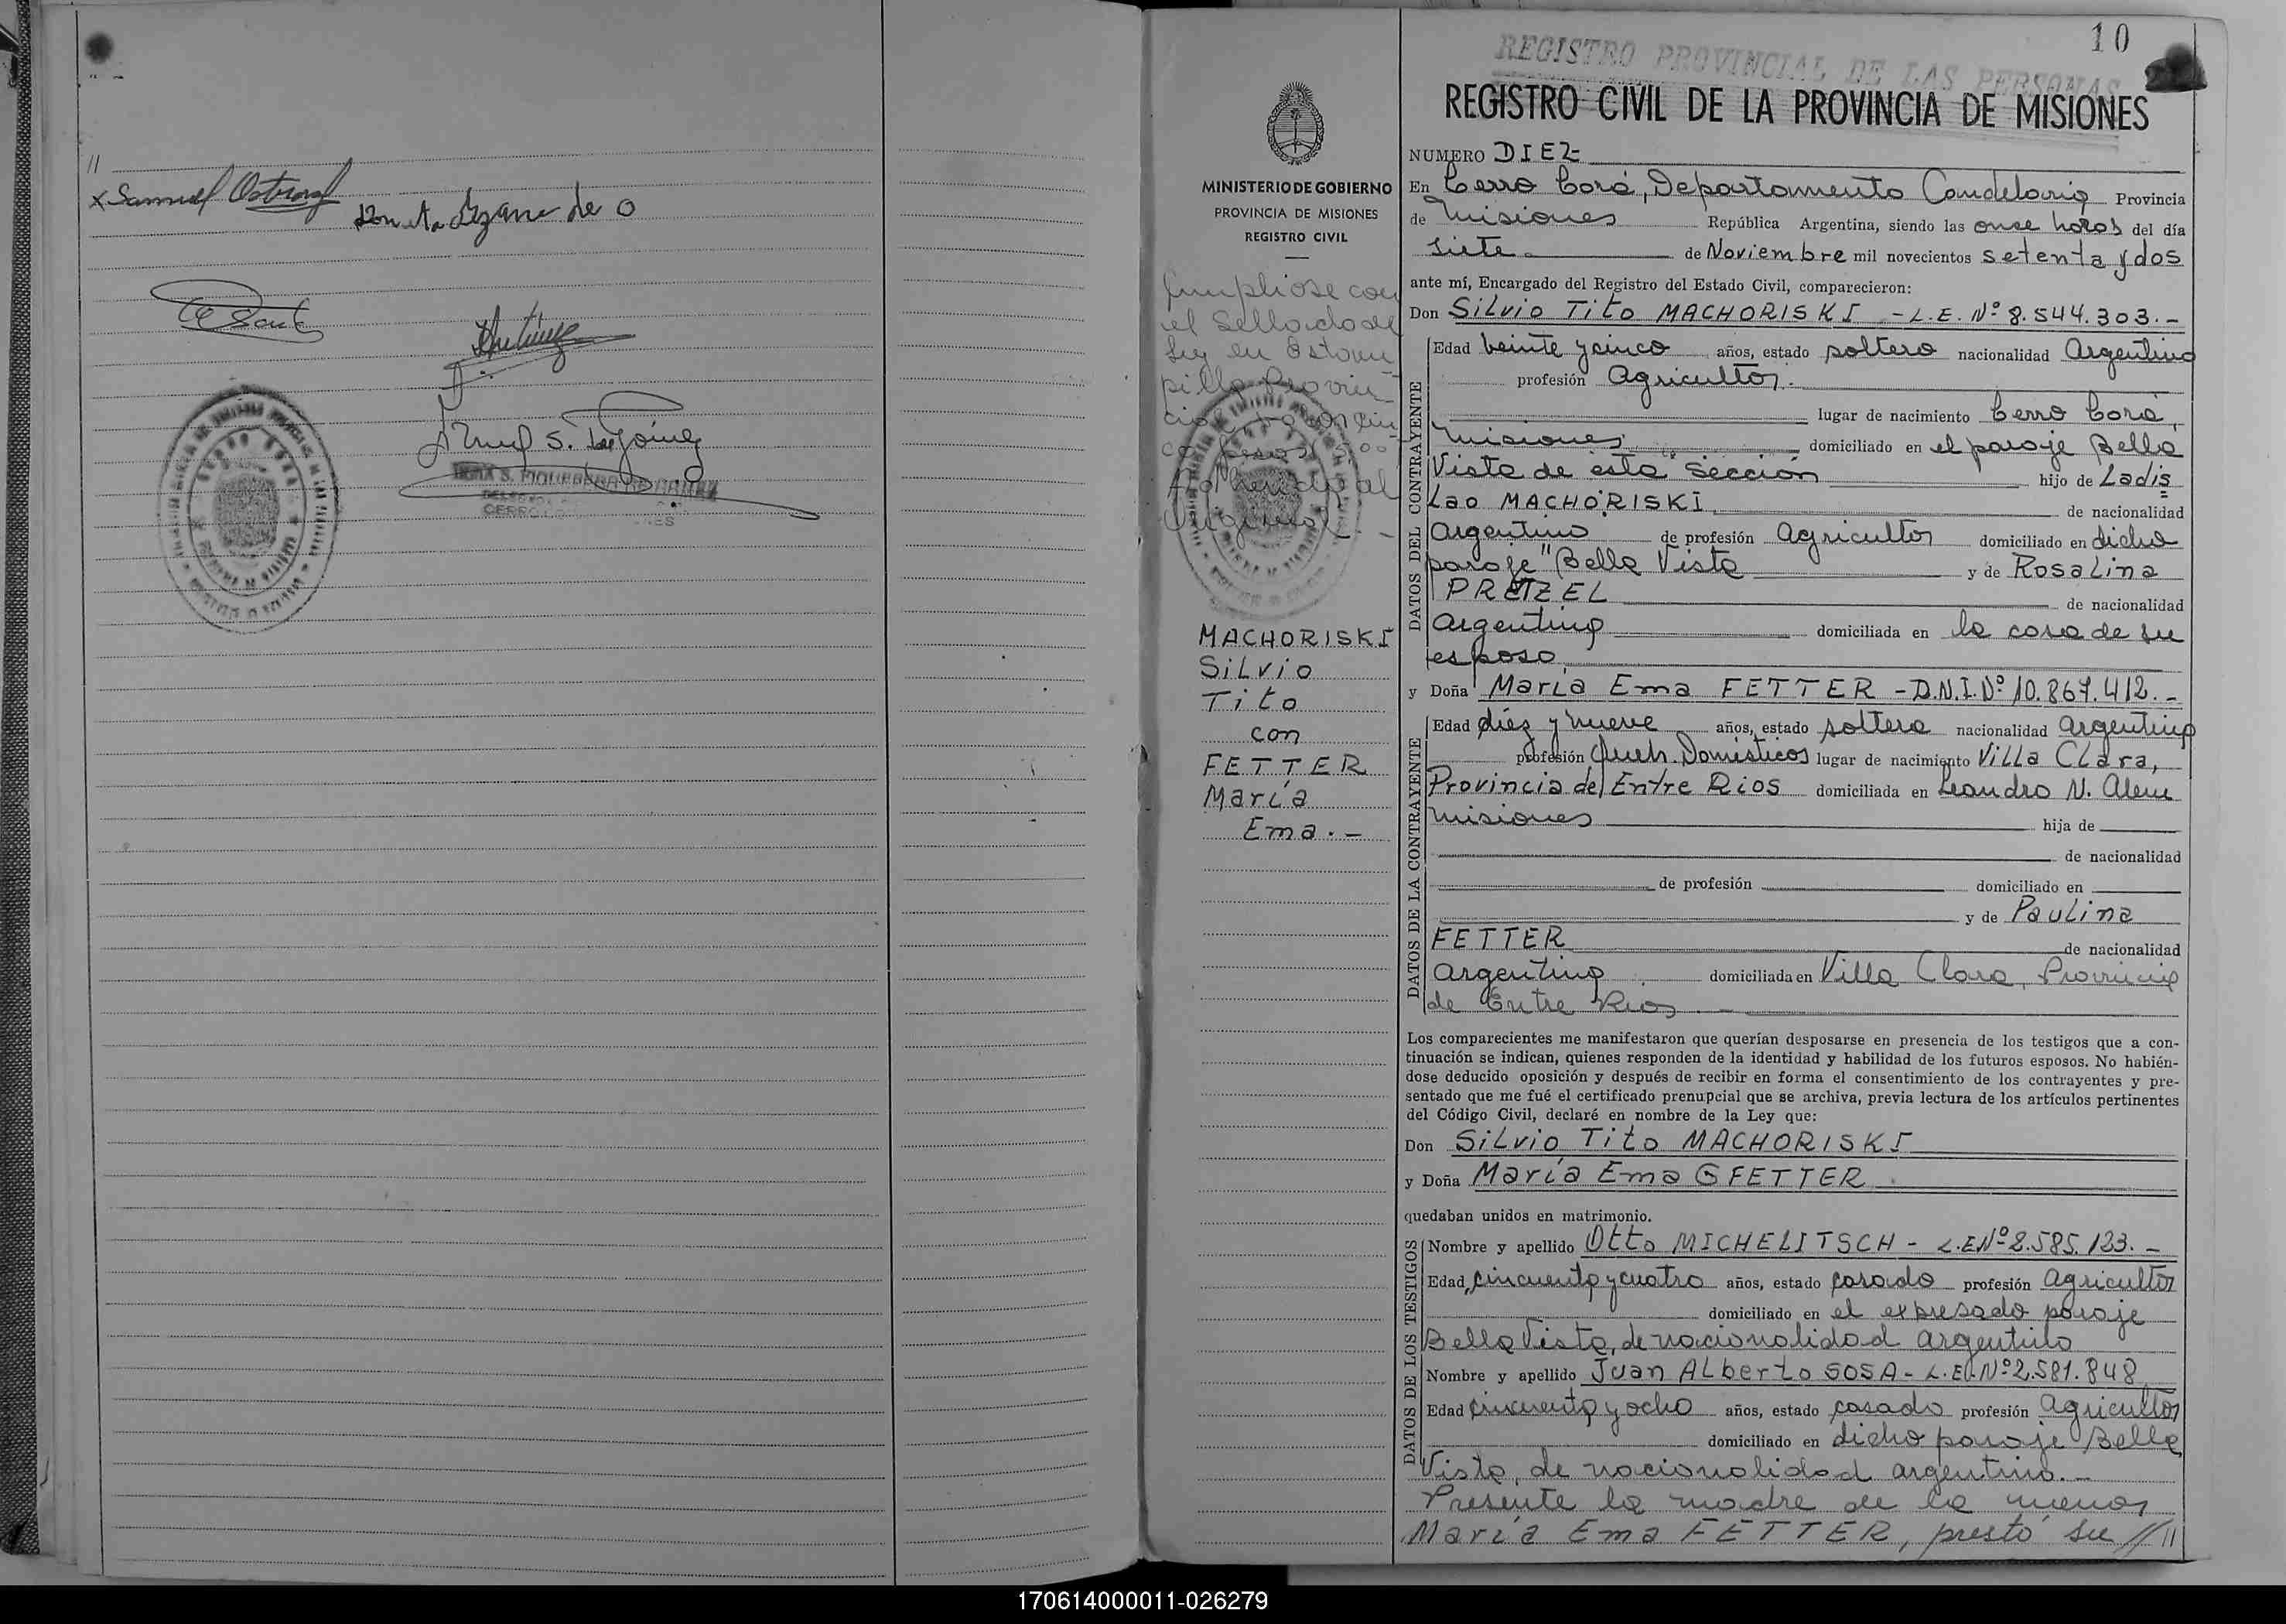 //
x Samuel
de O
10
REGISTRO PROVINCIAL DE LAS PERSONAS
REGISTRO CIVIL DE LA PROVINCIA DE MISIONES
MINISTERIO DE GOBIERNO
PROVINCIA DE MISIONES
REGISTRO CIVIL
NUMERO DIEZ
En Cerro Corá, Departamento Candelaria Provincia
de Misiones República Argentina, siendo las once horas del día
siete de Noviembre mil novecientos setenta y dos
ante mí, Encargado del Registro del Estado Civil, comparecieron:
Don Silvio Tito MACHORISKI - L.E. Nº 8.544.303.-
DATOS DEL CONTRAYENTE
Edad veinte y cinco años, estado soltero nacionalidad Argentino
profesión Agricultor.
lugar de nacimiento Cerro Corá,
Misiones domiciliado en el paraje Bella
Vista de esta Sección hijo de Ladis
lao MACHORISKI de nacionalidad
Argentino de profesión Agricultor domiciliado en dicho
paraje "Bella Vista y de Rosalina
PRETZEL de nacionalidad
Argentina domiciliada en la casa de su
esposo
y Doña María Ema FETTER - D.N.I. Nº 10.867.412.-
DATOS DE LA CONTRAYENTE
Edad diez y nueve años, estado soltera nacionalidad argentina
profesión Queh. Domésticos lugar de nacimiento Villa Clara,
Provincia de Entre Rios domiciliada en Leandro N. Alem
Misiones hija de
de nacionalidad
de profesión domiciliado en
y de Paulina
FETTER de nacionalidad
Argentina domiciliada en Villa Clara, Provincia
de Entre Rios.-
Los comparecientes me manifestaron que querían desposarse en presencia de los testigos que a con-
tinuación se indican, quienes responden de la identidad y habilidad de los futuros esposos. No habién-
dose deducido oposición y después de recibir en forma el consentimiento de los contrayentes y pre-
sentado que me fué el certificado prenupcial que se archiva, previa lectura de los artículos pertinentes
del Código Civil, declaré en nombre de la Ley que:
Don Silvio Tito MACHORISKI
y Doña María Ema GFETTER
quedaban unidos en matrimonio.
DATOS DE LOS TESTIGOS
Nombre y apellido Otto MICHELITSCH - L.E Nº 2.585.123.-
Edad cincuenta y cuatro años, estado casado profesión Agricultor
domiciliado en el expresado paraje
Bella Vista, de nacionalidad argentino
Nombre y apellido Juan Alberto SOSA - L.E. Nº 2.581.848
Edad cincuenta y ocho años, estado casado profesión Agricultor
domiciliado en dicho paraje Bella
Vista, de nacionalidad argentino.-
Presente la madre de la menor
María Ema FETTER, prestó su //
Cumpliose con
el Sellado de
Ley en Estam
pilla Provin
MACHORISKI
Silvio
Tito
con
FETTER
María
Ema.-
170614000011-026279